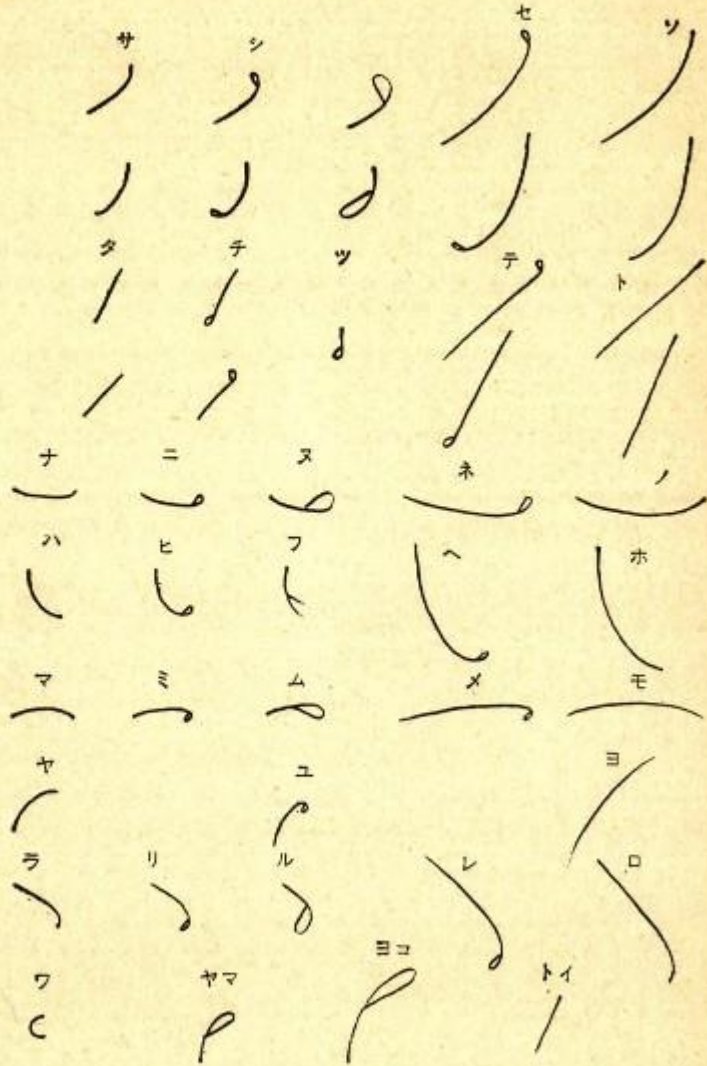 サ シ セ ソ
タ チ ツ テ ト
ナ ニ ヌ ネ ノ
ハ ヒ フ ヘ ホ
マ ミ ム メ モ
ヤ ユ ヨ
ラ リ ル レ ロ
ワ ヤマ ヨコ トイ